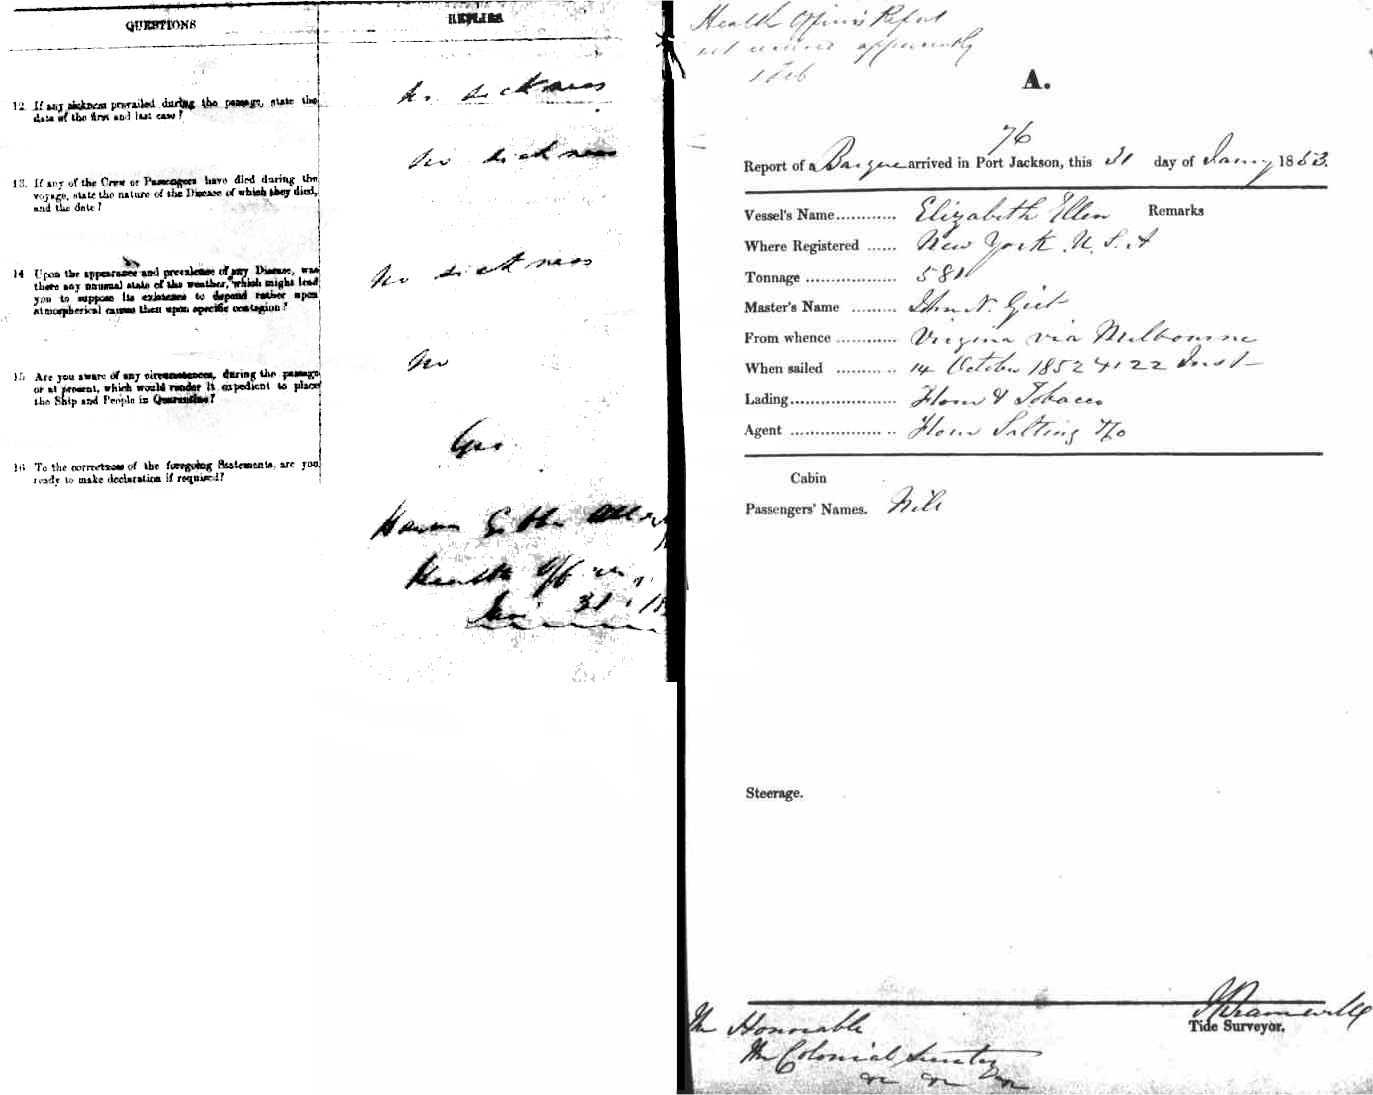 QUESTIONS
REPLIES
12. If any sickness prevailed during the passage, state the
date of the first and last case?
No sickness
13. If any of the Crew or Passengers have died during the
voyage, state the nature of the Disease of which they died,
and the date?
No sickness
14 Upon the appearance and prevalence of any Disease, was
there any unusual state of the weather, which might lead
you to suppose its existence to depend rather upon
atmospherical causes then upon specific contagion?
No sickness
15 Are you aware of any circumstances, during the passage
or at present, which would render it expedient to place
the Ship and People in Quarantine?
No
16 To the correctness of the foregoing Statements, are you
ready to make declaration if required?
Yes
Health Officer
Jan 31 18
Health Officer's Report
not received apparently
1 Feb
A.
76
Report of a Barque arrived in Port Jackson, this 31 day of Jany 1853.
Vessel's Name............ Elizabeth Ellen Remarks
Where Registered ...... New York U.S.A
Tonnage .................. 581
Master's Name ......... John N.
From whence ............ Virginia via Melbourne
When sailed ............ 14 October 1852 & 22 Inst
Lading..................... Flour & Tobacco
Agent .................... Flower Salting & Co
Cabin
Passengers' Names. Nil
Steerage.
Tide Surveyor.
The Honorable
The Colonial Secretary
&c &c &c